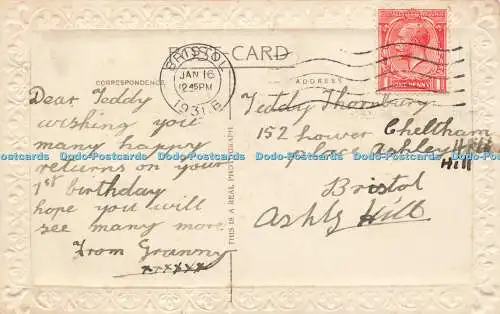 POST-CARD
BRISTOL
JAN 16
12.45PM
1931
CORRESPONDENCE
ADDRESS
ONE PENNY
Dear Teddy
wishing you
many happy
returns on your
1st birthday
hope you will
see many more
From Granny
xxxxxx
THIS IS A REAL PHOTOGRAPH
Teddy Thornbury
152 Lower Cheltham
place Ashley Hill
Hill
Bristol
Ashly Hill
Dodo-Postcards Dodo-Postcards Dodo-Postcards Dodo-Postcards Dodo-Postcards Dodo-Postcards Dodo-Postcards